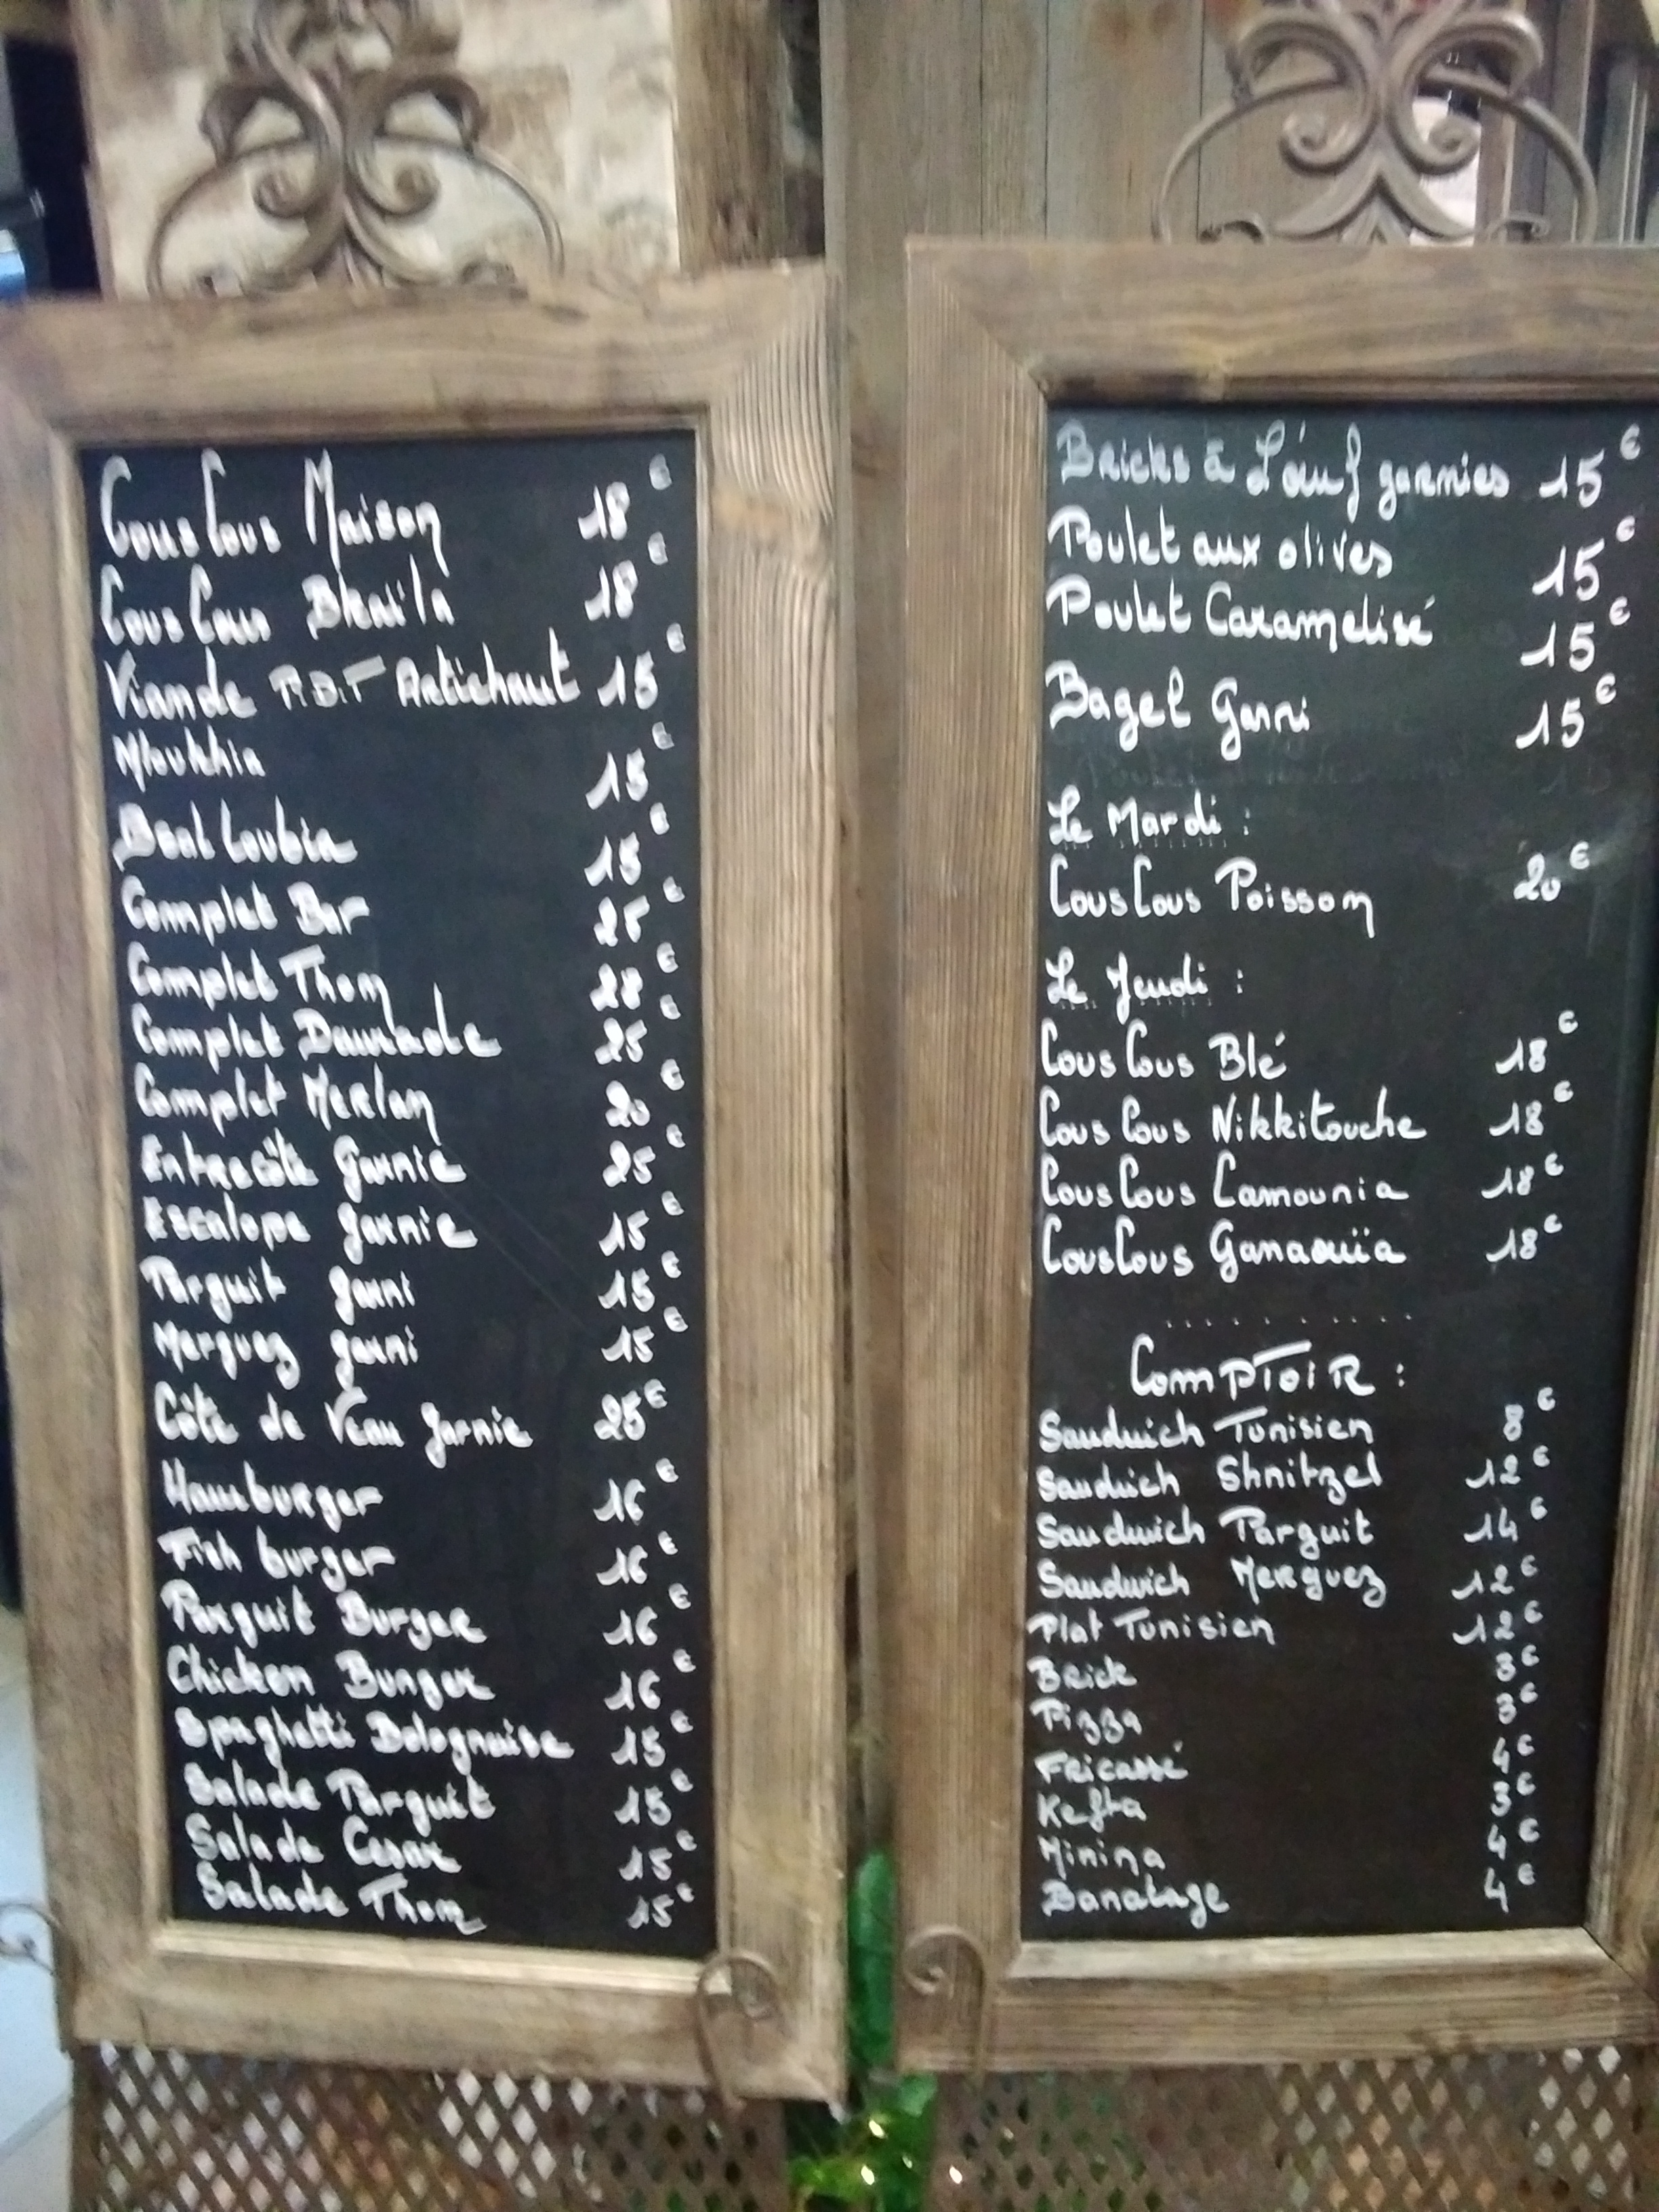 CousCous Maison 18€
CousCous Bkaïla 18€
Viande P.D.T Artichaut 15€
Mloukhia 15€
Bkal Loubia 15€
Complet Bar 25€
Complet Thon 28€
Complet Daurade 25€
Complet Merlan 20€
Entrecôte garnie 25€
Escalope garnie 15€
Parguit garni 15€
Merguez garni 15€
Côte de Veau garnie 25€
Hamburger 16€
Fish burger 16€
Parguit Burger 16€
Chicken Burger 16€
Spaghetti Bolognaise 15€
Salade Parguit 15€
Salade Cesar 15€
Salade Thon 15€
Bricks à L'œuf garnies 15€
Poulet aux olives 15€
Poulet Caramelisé 15€
Bagel Garni 15€
Le Mardi :
CousCous Poisson 20€
Le Jeudi :
CousCous Blé 18€
CousCous Nikkitouche 18€
CousCous Camounia 18€
CousCous Ganaouïa 18€
..........
COMPTOIR :
Sandwich Tunisien 8€
Sandwich Shnitzel 12€
Sandwich Parguit 14€
Sandwich Merguez 12€
Plat Tunisien 12€
Brick 3€
Pizza 3€
Fricassé 4€
Kefta 3€
Minina 4€
Banatage 4€